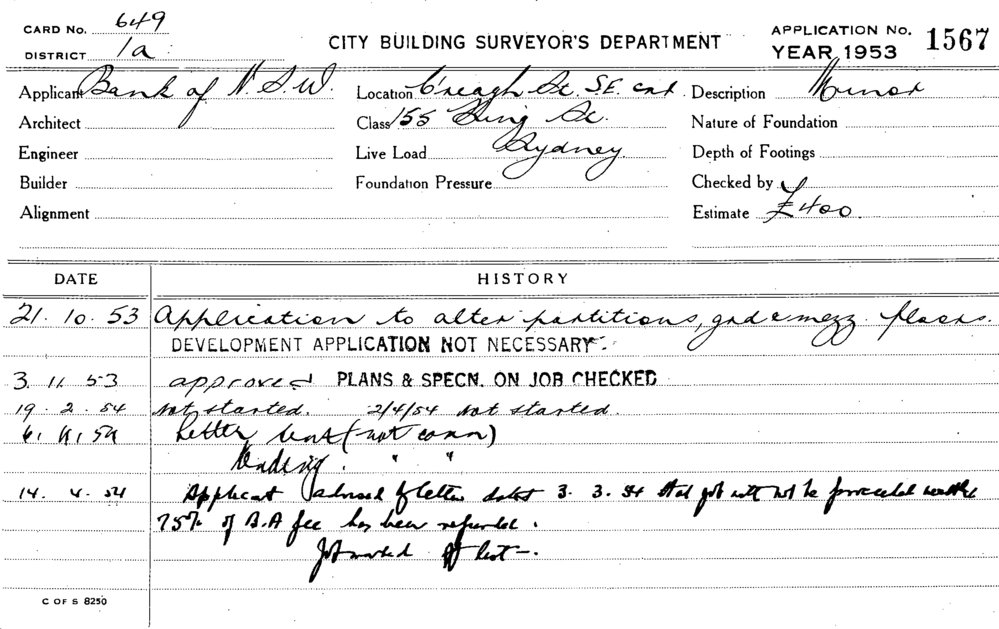 CARD No. 649
DISTRICT 1a
CITY BUILDING SURVEYOR'S DEPARTMENT
APPLICATION No. 1567
YEAR 1953
Applicant Bank of N.S.W.
Location C'reagh St. S.E. cnr.
Description Minor
Architect
Class 155 King St.
Nature of Foundation
Engineer
Live Load Sydney
Depth of Footings
Builder
Foundation Pressure
Checked by
Alignment
Estimate £400
DATE HISTORY
21. 10. 53 Application to alter partitions, grd & mezz. floors.
DEVELOPMENT APPLICATION NOT NECESSARY.
3. 11. 53 approved PLANS & SPECN. ON JOB CHECKED
19. 2. 54 Not started. 2/4/54 Not started.
Letter sent (not comm)
Pending. " "
14. 4. 54 Applicant advised by letter dated 3. 3. 54 that job will not be proceeded with
75% of B.A fee has been refunded.
Job marked off list.
C OF S 8250